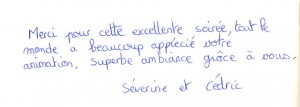 Merci pour cette excellente soirée, tout le
monde a beaucoup apprécié votre
animation, superbe ambiance grâce à vous.
Séverine et Cédric